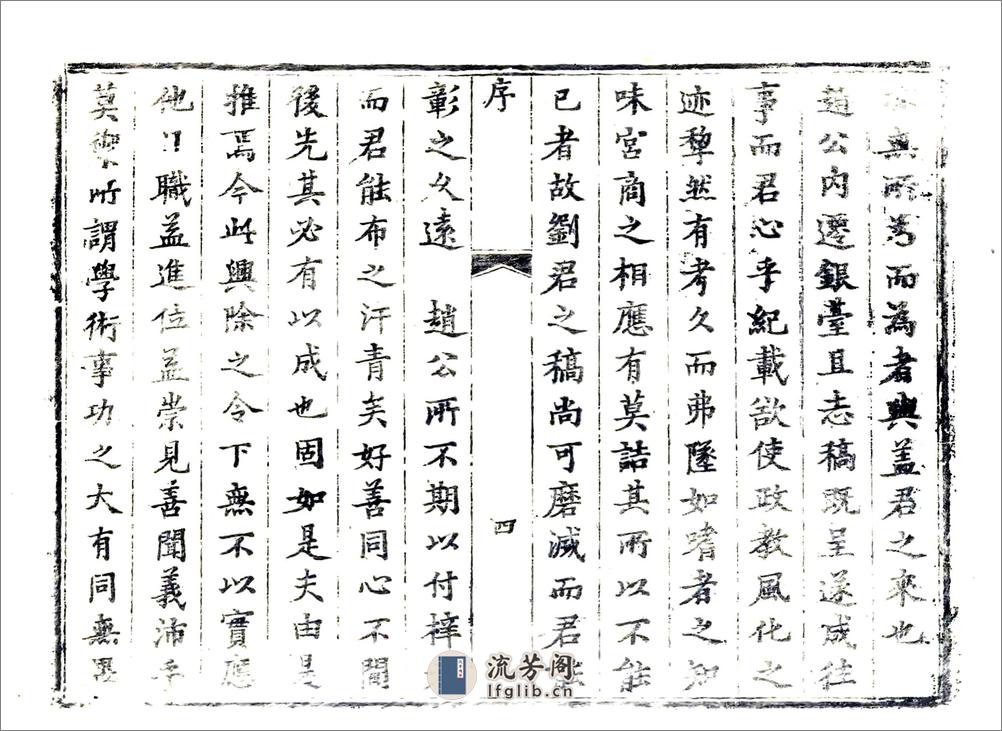 無所為而為者與蓋君之來也
趙公內遷銀臺且志稿既呈遂成往
事而君心乎紀載欲使政教風化之
迹犂然有考久而弗墜如嗜者之知
味宮商之相應有莫詰其所以不能
已者故劉君之稿尚可磨滅而君能
序
四
彰之久遠 趙公所不期以付梓
而君能布之汗青矣好善同心不間
後先其必有以成也固如是夫由是
推焉今此興除之令下無不以實應
他日職益進位益崇見善聞義沛乎
莫禦所謂學術事功之大有同無異
流芳阁
lfglib.cn